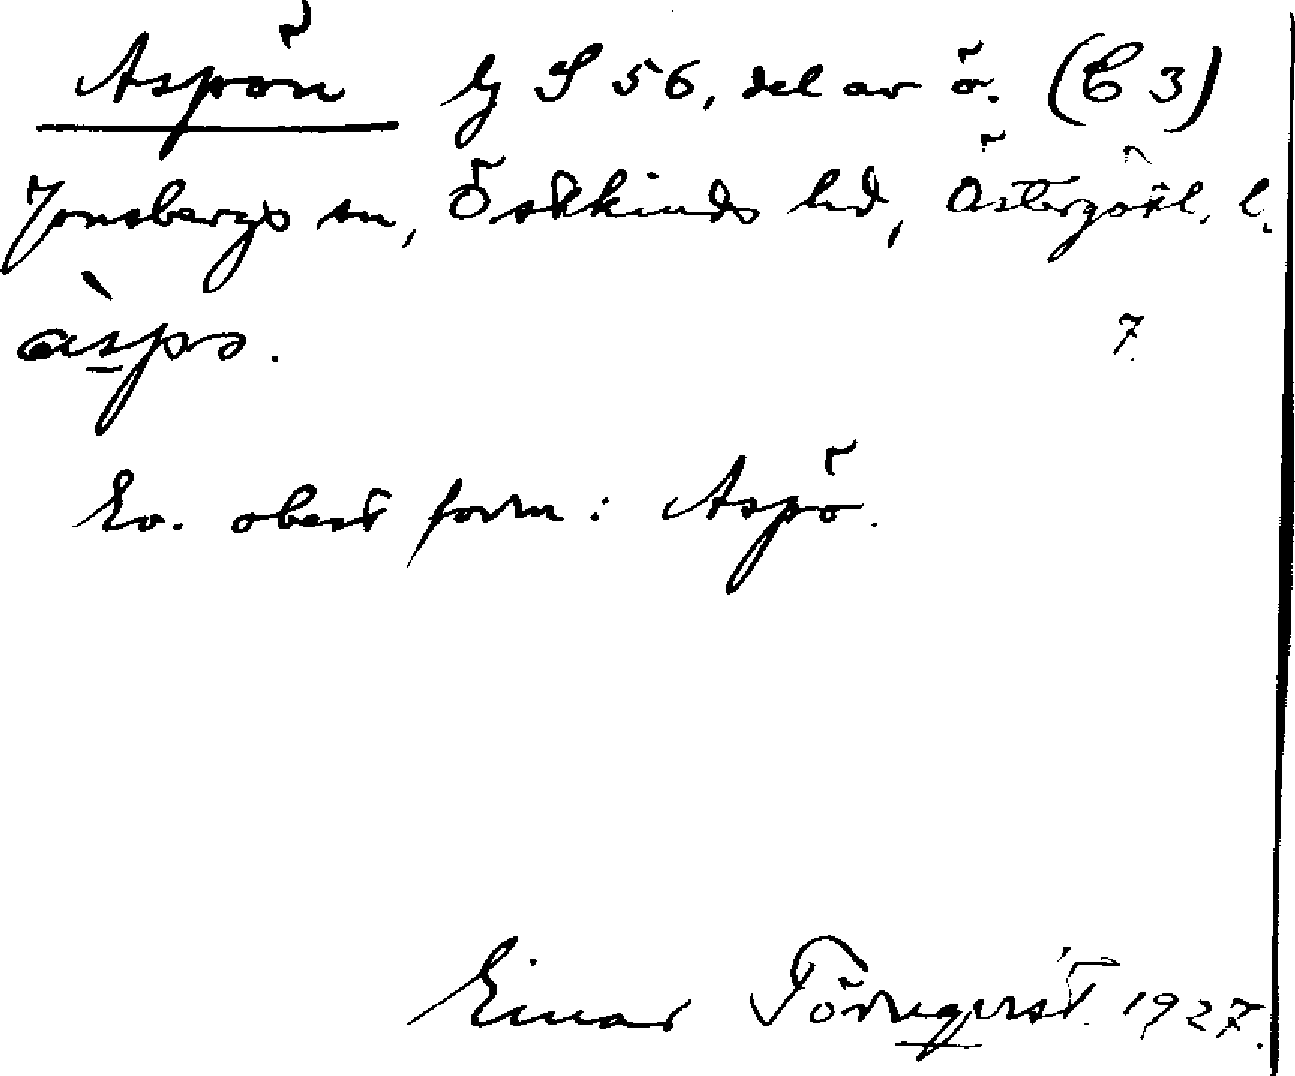 Aspön lg S 56, del av ö. (C 3)
Jonsbergs sn, Östkinds hd, Östergötl. l.
àspo. 7.
Ev. obest form: Aspö.
Einar Törnqvist. 1927.